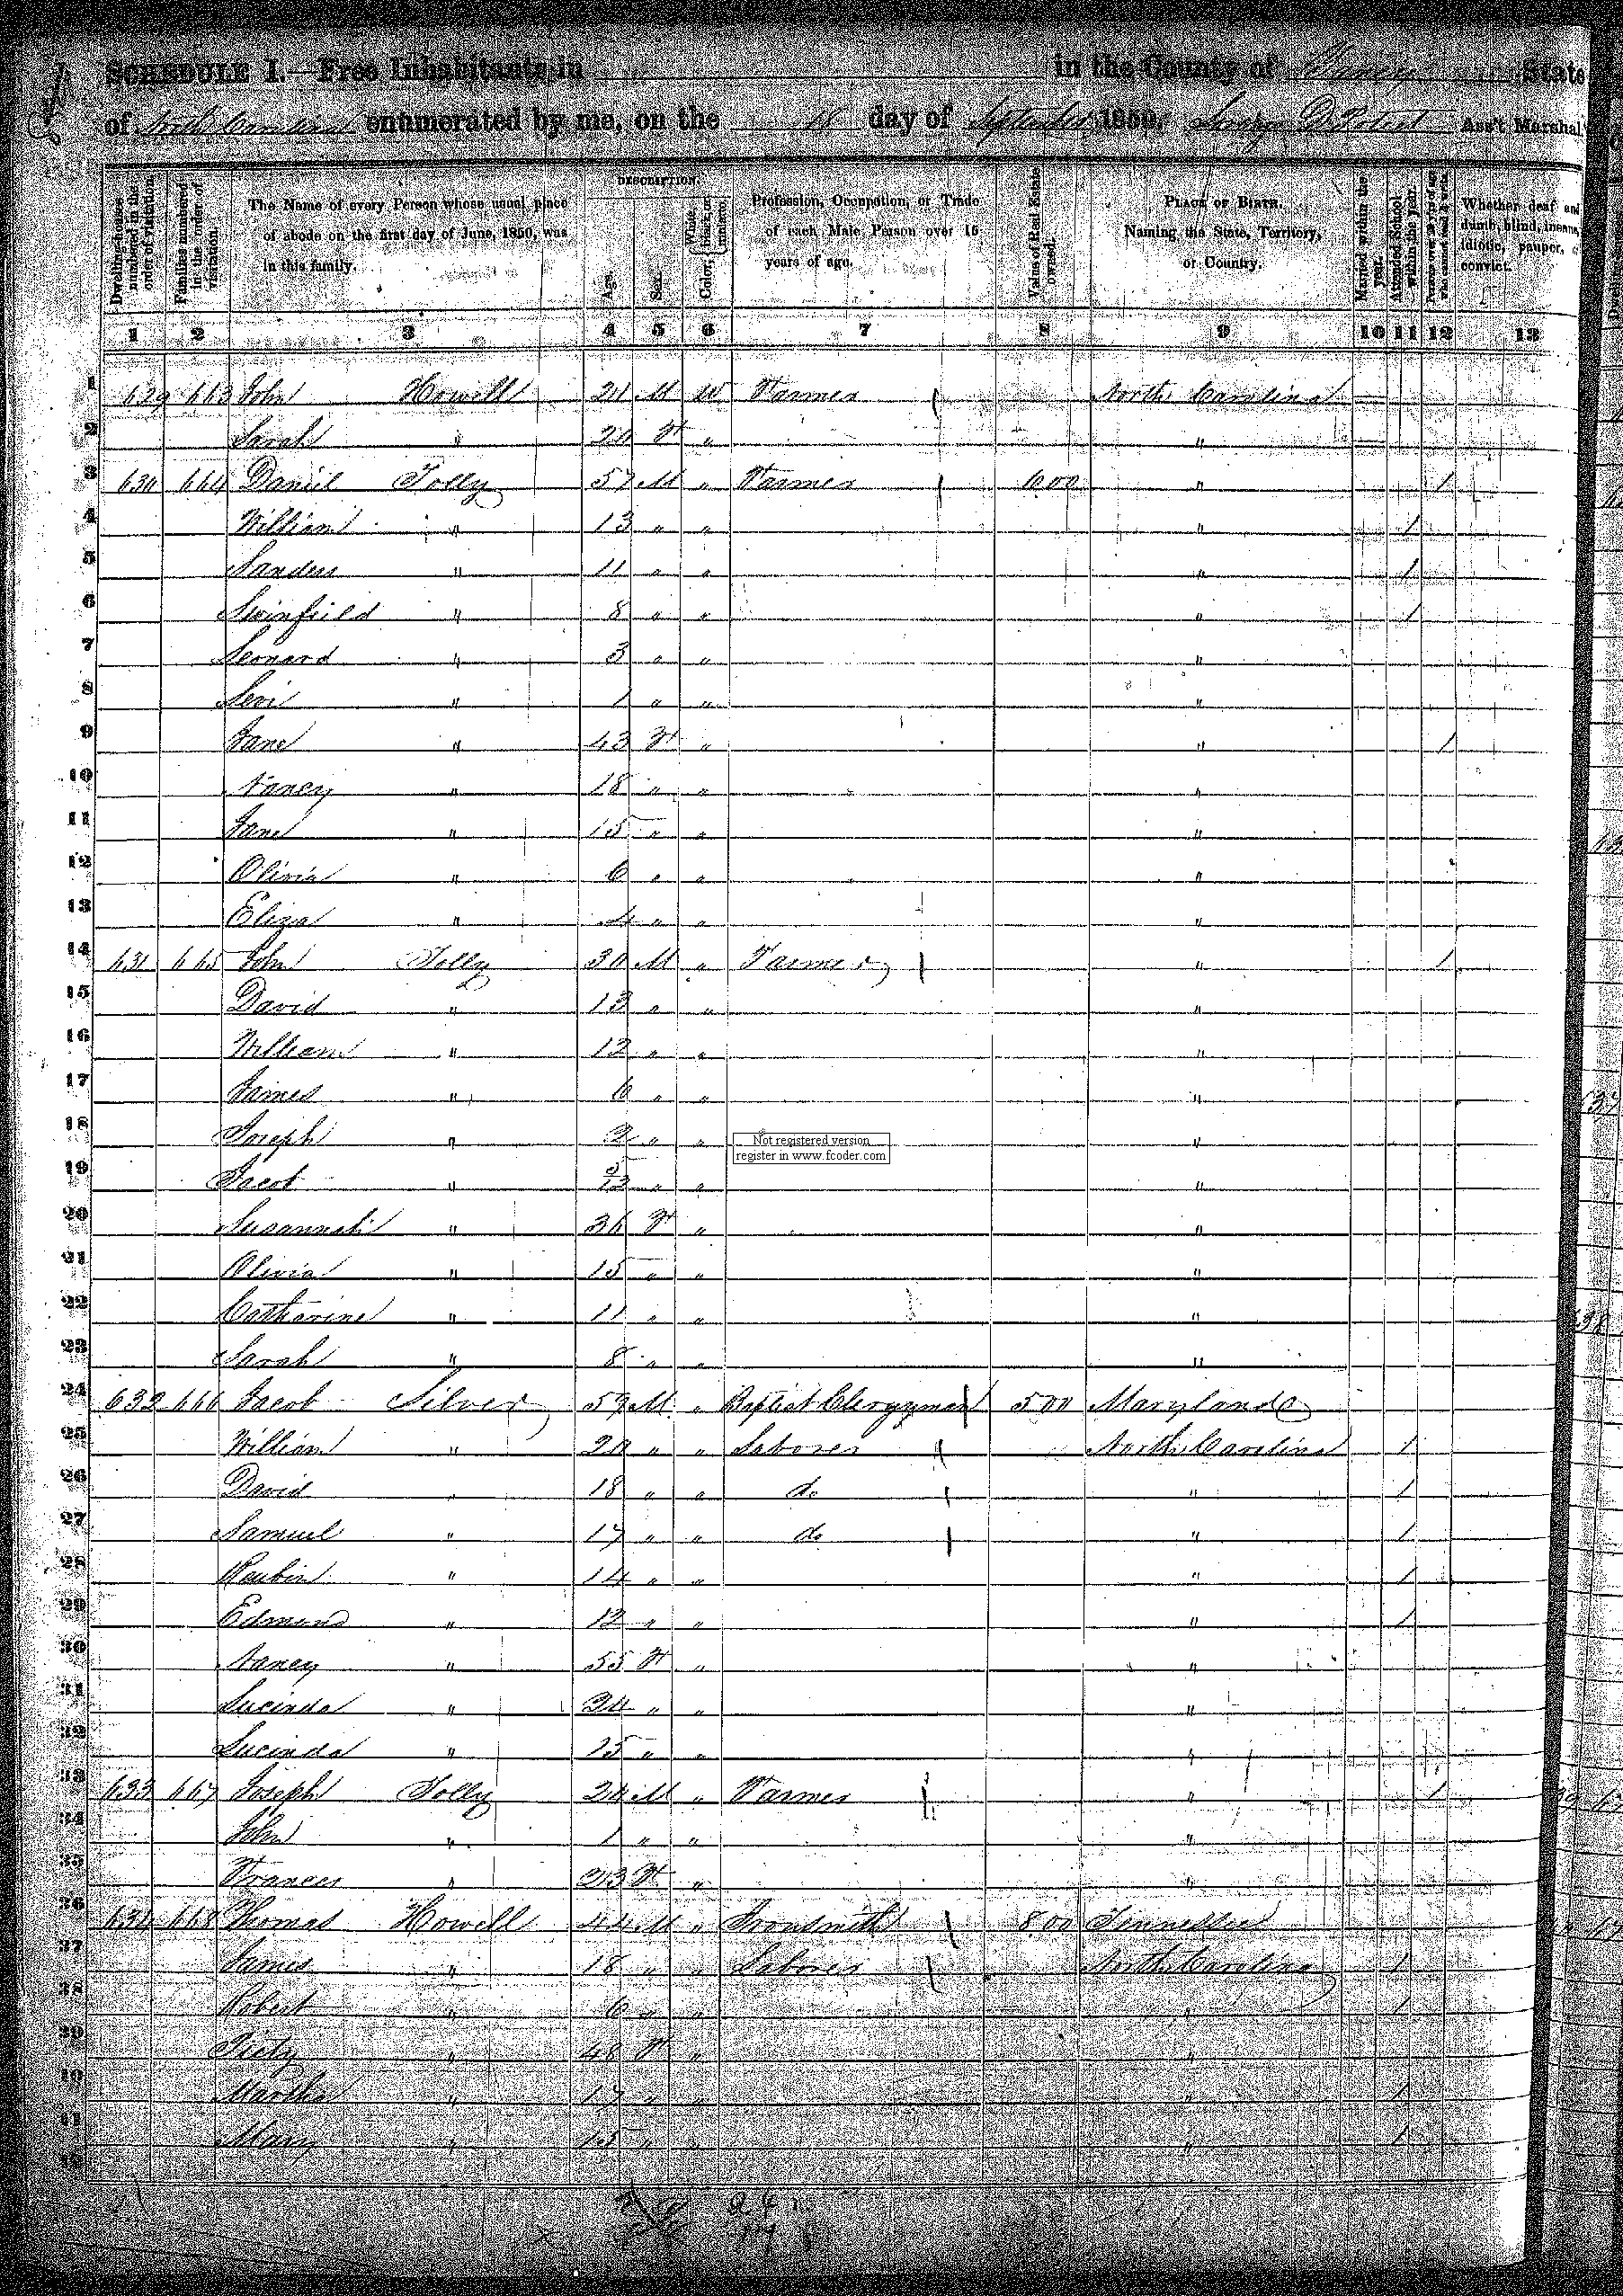 SCHEDULE I.—Free Inhabitants in in the County of Yancy State
of North Carolina enumerated by me, on the 18 day of September 1850. Ass't Marshal
Dwelling-houses numbered in the order of visitation.
Families numbered in the order of visitation.
The Name of every Person whose usual place of abode on the first day of June, 1850, was in this family.
DESCRIPTION.
Age.
Sex.
Color, White, black, or mulatto.
Profession, Occupation, or Trade of each Male Person over 15 years of age.
Value of Real Estate owned.
PLACE OF BIRTH. Naming the State, Territory, or Country.
Married within the year.
Attended School within the year.
Persons over 20 y'rs of age who cannot read & write.
Whether deaf and dumb, blind, insane, idiotic, pauper, or convict.
1 2 3 4 5 6 7 8 9 10 11 12 13
1 629 663 John Howell 24 M W Farmer North Carolina
2 Sarah " 20 F " "
3 630 664 Daniel Tolly 57 M " Farmer 1000 " 1
4 William " 13 " " " 1
5 Sanders " 11 " " " 1
6 Swinfield " 8 " " " 1
7 Leonard " 3 " " "
8 Levi " 1 " " "
9 Jane " 43 F " " 1
10 Nancy " 18 " " "
11 Jane " 15 " " "
12 Olivia " 6 " " "
13 Eliza " 4 " " "
14 631 665 John Tolly 30 M " Farmer " 1
15 David " 13 " " "
16 William " 12 " " "
17 James " 6 " " "
18 Joseph " 2 " " "
Not registered version
register in www.fcoder.com
19 Jacob " 5/12 " " "
20 Susannah " 36 F " "
21 Olivia " 15 " " "
22 Catharine " 11 " " "
23 Sarah " 8 " " "
24 632 666 Jacob Silver 59 M " Baptist Clergyman 500 Maryland
25 William " 20 " " Laborer North Carolina 1
26 David " 18 " " do " 1
27 Samuel " 17 " " do " 1
28 Reubin " 14 " " " 1
29 Edmund " 12 " " " 1
30 Nancy " 55 F " "
31 Lucinda " 24 " " "
32 Lucinda " 15 " " "
33 633 667 Joseph Tolly 20 M " Farmer " 1
34 John " 1 " " "
35 Frances " 23 F " "
36 634 668 Thomas Howell 44 M " Ironsmith 800 Tennessee
37 James " 18 " " Laborer North Carolina 1
38 Robert " 6 " " " 1
39 " 48 F " "
40 Martha " 17 " " " 1
41 Mary " 15 " " 1